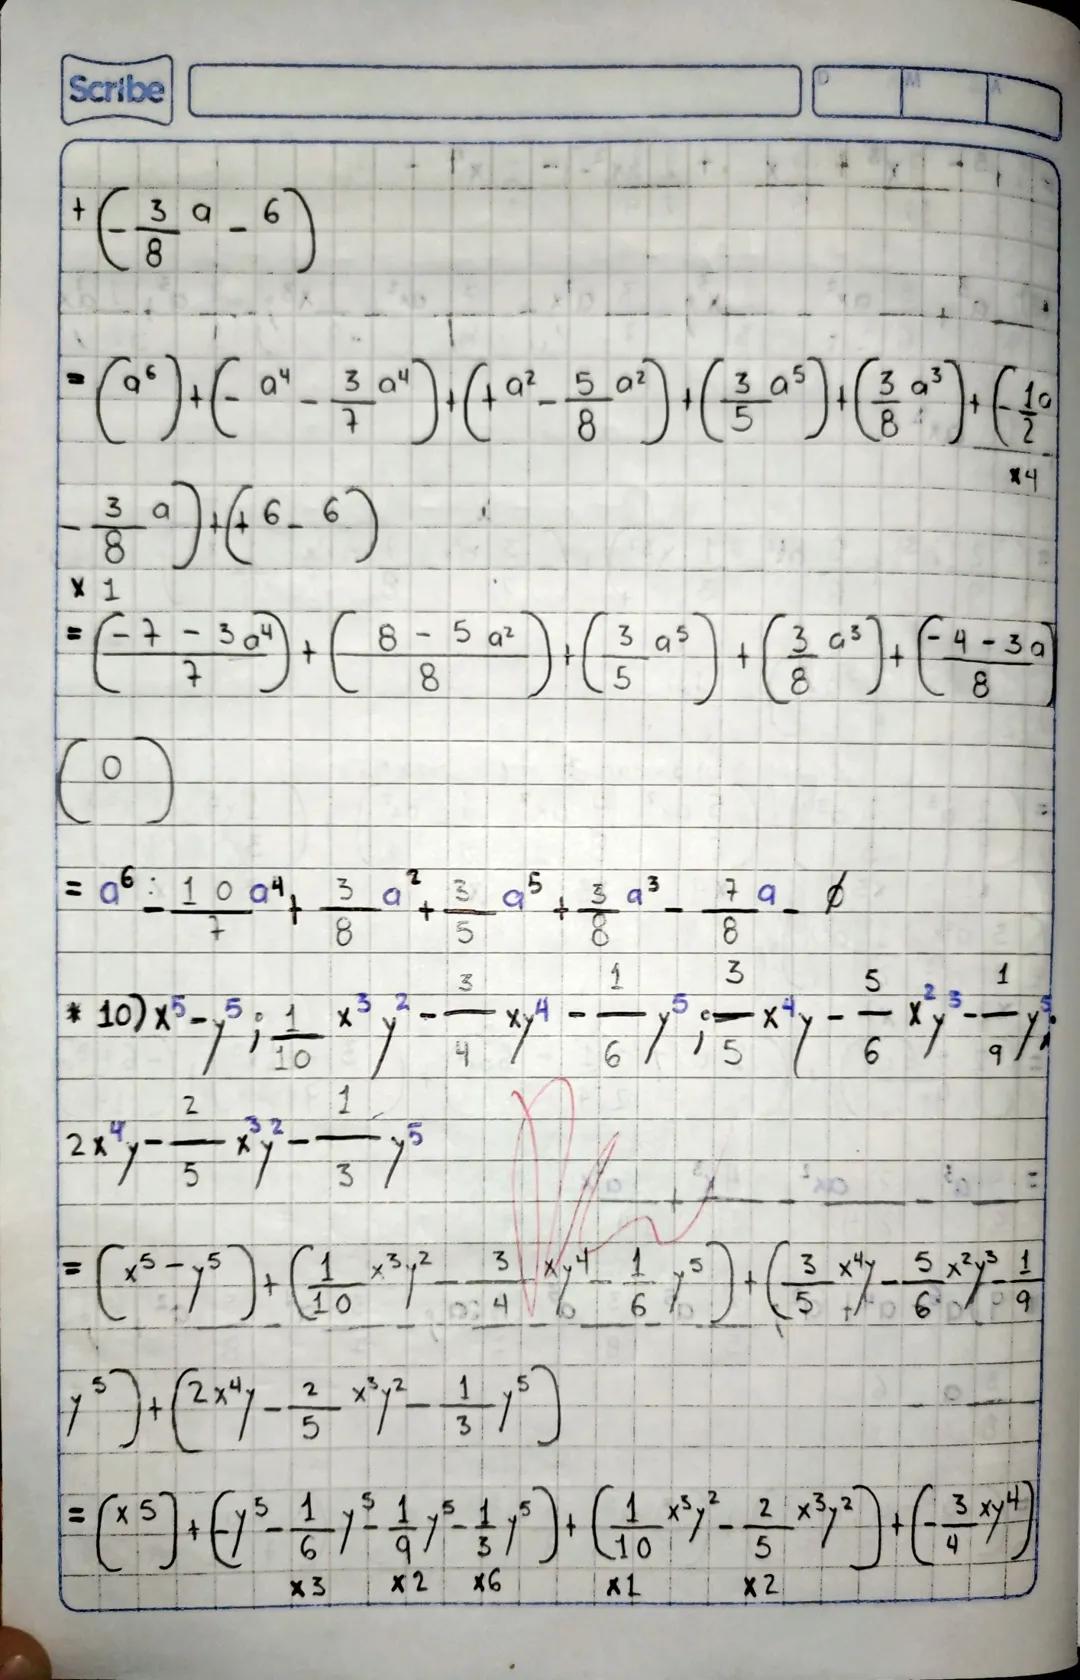 Scribe
+ (- 3/8 a - 6)
= (a⁶) + (- a⁴ - 3/7 a⁴) + (+ a² - 5/8 a²) + (3/5 a⁵) + (3/8 a³) + (- 1/2 a
x4
- 3/8 a) + (+ 6 - 6)
x 1
= (- 7 - 3a⁴ / 7) + (8 - 5 a² / 8) + (3/5 a⁵) + (3/8 a³) + (- 4 - 3a / 8)
(0)
= a⁶ - 10/7 a⁴ + 3/8 a² + 3/5 a⁵ + 3/8 a³ - 7/8 a - 0
* 10) x⁵ - y⁵ ; 1/10 x³y² - 3/4 xy⁴ - 1/6 y⁵ ; 3/5 x⁴y - 5/6 x²y³ - 1/9 y⁵;
2x⁴y - 2/5 x³y² - 1/3 y⁵
= (x⁵ - y⁵) + (1/10 x³y² - 3/4 xy⁴ - 1/6 y⁵) + (3/5 x⁴y - 5/6 x²y³ - 1/9
y⁵) + (2x⁴y - 2/5 x³y² - 1/3 y⁵)
= (x5) + (- y⁵ - 1/6 y⁵ - 1/9 y⁵ - 1/3 y⁵) + (1/10 x³y² - 2/5 x³y²) + (- 3/4 xy⁴)
x3 x2 x6 x1 x2